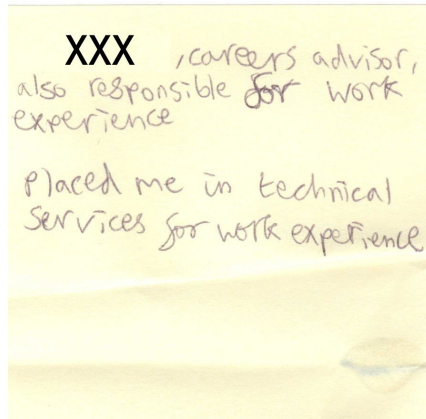 XXX , careers advisor,
also responsible for work
experience
placed me in technical
services for work experience